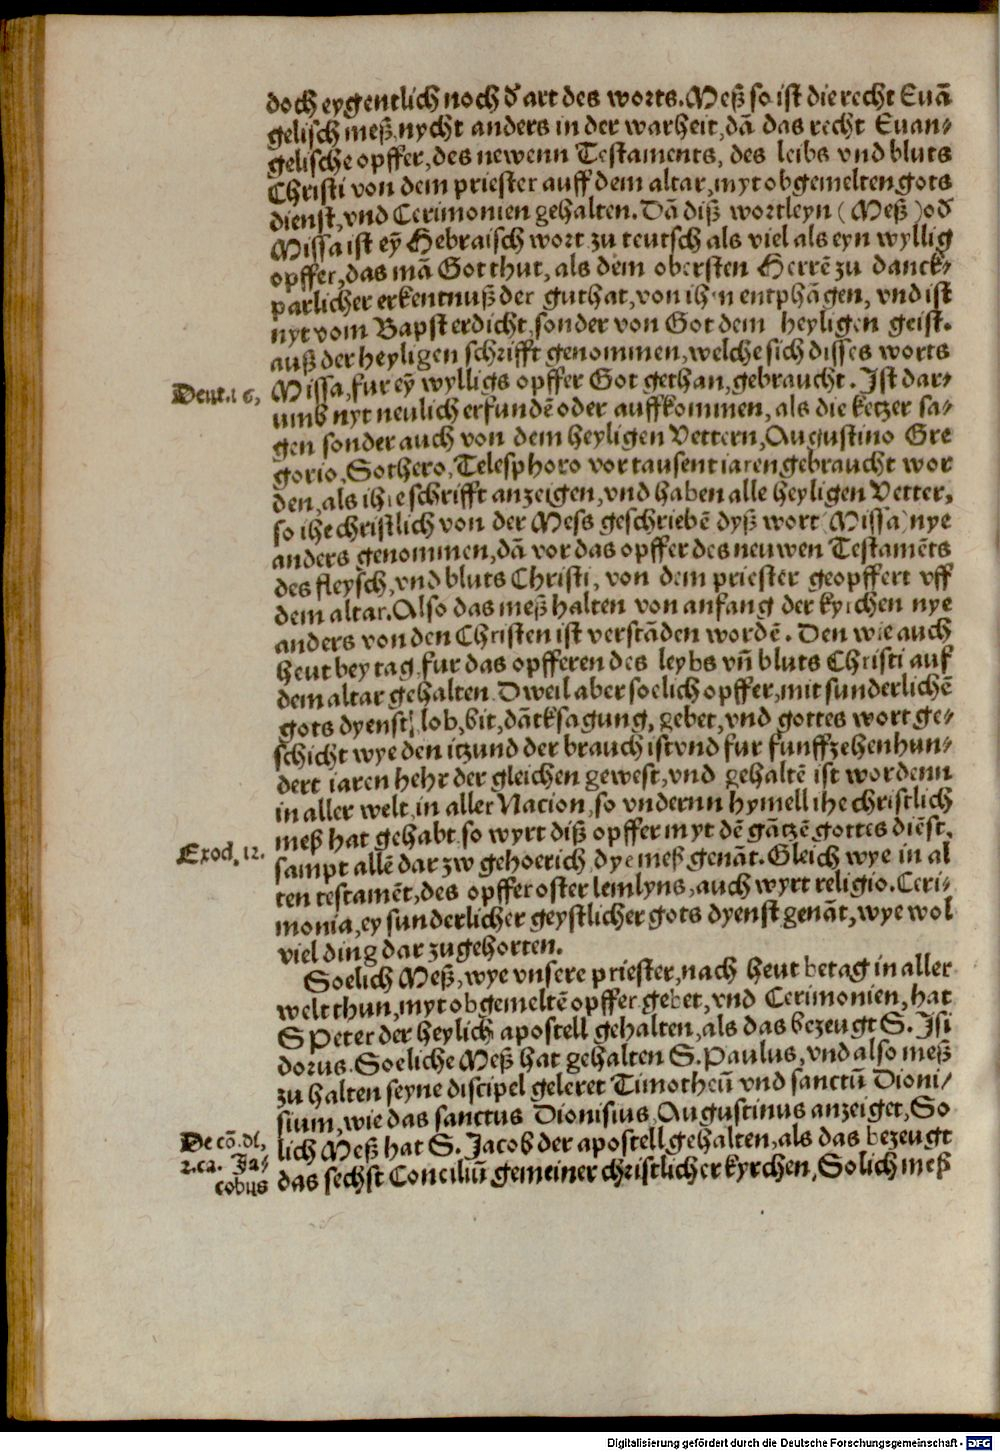 doch eygentlich noch d̕ art des worts. Meß so ist die recht Euā
gelisch meß, nycht anders in der warheit, dā das recht Euan-
gelische opffer, des newenn Testaments, des leibs vnd bluts
Christi von dem priester auff dem altar, myt obgemelten gots
dienst, vnd Cerimonien gehalten. Dā diß wortleyn (Meß) od̕
Missa ist eȳ Hebraisch wort zu teutsch als viel als eyn wyllig
opffer, das mā Got thut, als dem obersten Herrē zu danck-
parlicher erkentnuß der guthat, von ihm entphāgen, vnd ist
nyt vom Bapst erdicht, sonder von Got dem heyligen geist.
auß der heyligen schrifft genommen, welche sich disses worts
Deut. 16, Missa, fur eȳ wylligs opffer Got gethan, gebraucht. Ist dar-
umb nyt neulich erfundē oder auffkommen, als die ketzer sa-
gen sonder auch von dem heyligen Vettern, Augustino Gre
gorio, Sothero, Telesphoro vor tausent iaren gebraucht wor
den, als ihre schrifft anzeigen, vnd haben alle heyligen Vetter,
so ihe christlich von der Mess geschriebē dyß wort (Missa) nye
anders genommen, dā vor das opffer des neuwen Testamēts
des fleysch, vnd bluts Christi, von dem priester geopffert vff
dem altar. Also das meß halten von anfang der kyrchen nye
anders von den Christen ist verstāden wordē. Den wie auch
heut bey tag, fur das opfferen des leybs vn̄ bluts Christi auf
dem altar gehalten. Dweil aber soelich opffer, mit sunderlichē
gots dyenst, lob, bit, dācksagung, gebet, vnd gottes wort ge-
schicht wye den itzund der brauch ist vnd fur funffzehenhun-
dert iaren hehr der gleichen gewest, vnd gehaltē ist wordenn
in aller welt, in aller Nacion, so vndernn hymell ihe christlich
meß hat gehabt, so wyrt diß opffer myt dē gātzē gottes diēst,
Exod. 12. sampt allē dar zw gehoerich, dye meß genāt. Gleich wye in al
ten testamēt, des opffer oster lemlyns, auch wyrt religio. Ceri-
monia, ey sunderlicher geystlicher gots dyenst genāt, wye wol
viel ding dar zugehorten.
Soelich Meß, wye vnsere priester, nach heut betag in aller
welt thun, myt obgemeltē opffer gebet, vnd Cerimonien, hat
S Peter der heylich apostell gehalten, als das bezeugt S. Isi
dorus. Soeliche Meß hat gehalten S. Paulus, vnd also meß
zu halten seyne discipel geleret Timotheū vnd sanctū Dioni-
sium, wie das sanctus Dionisius, Augustinus anzeiget, So
De cō. di, lich Meß hat S. Jacob der apostell gehalten, als das bezeugt
2. ca. Ja- das sechst Conciliū gemeiner christlicher kyrchen, Solich meß
cobus
Digitalisierung gefördert durch die Deutsche Forschungsgemeinschaft - DFG